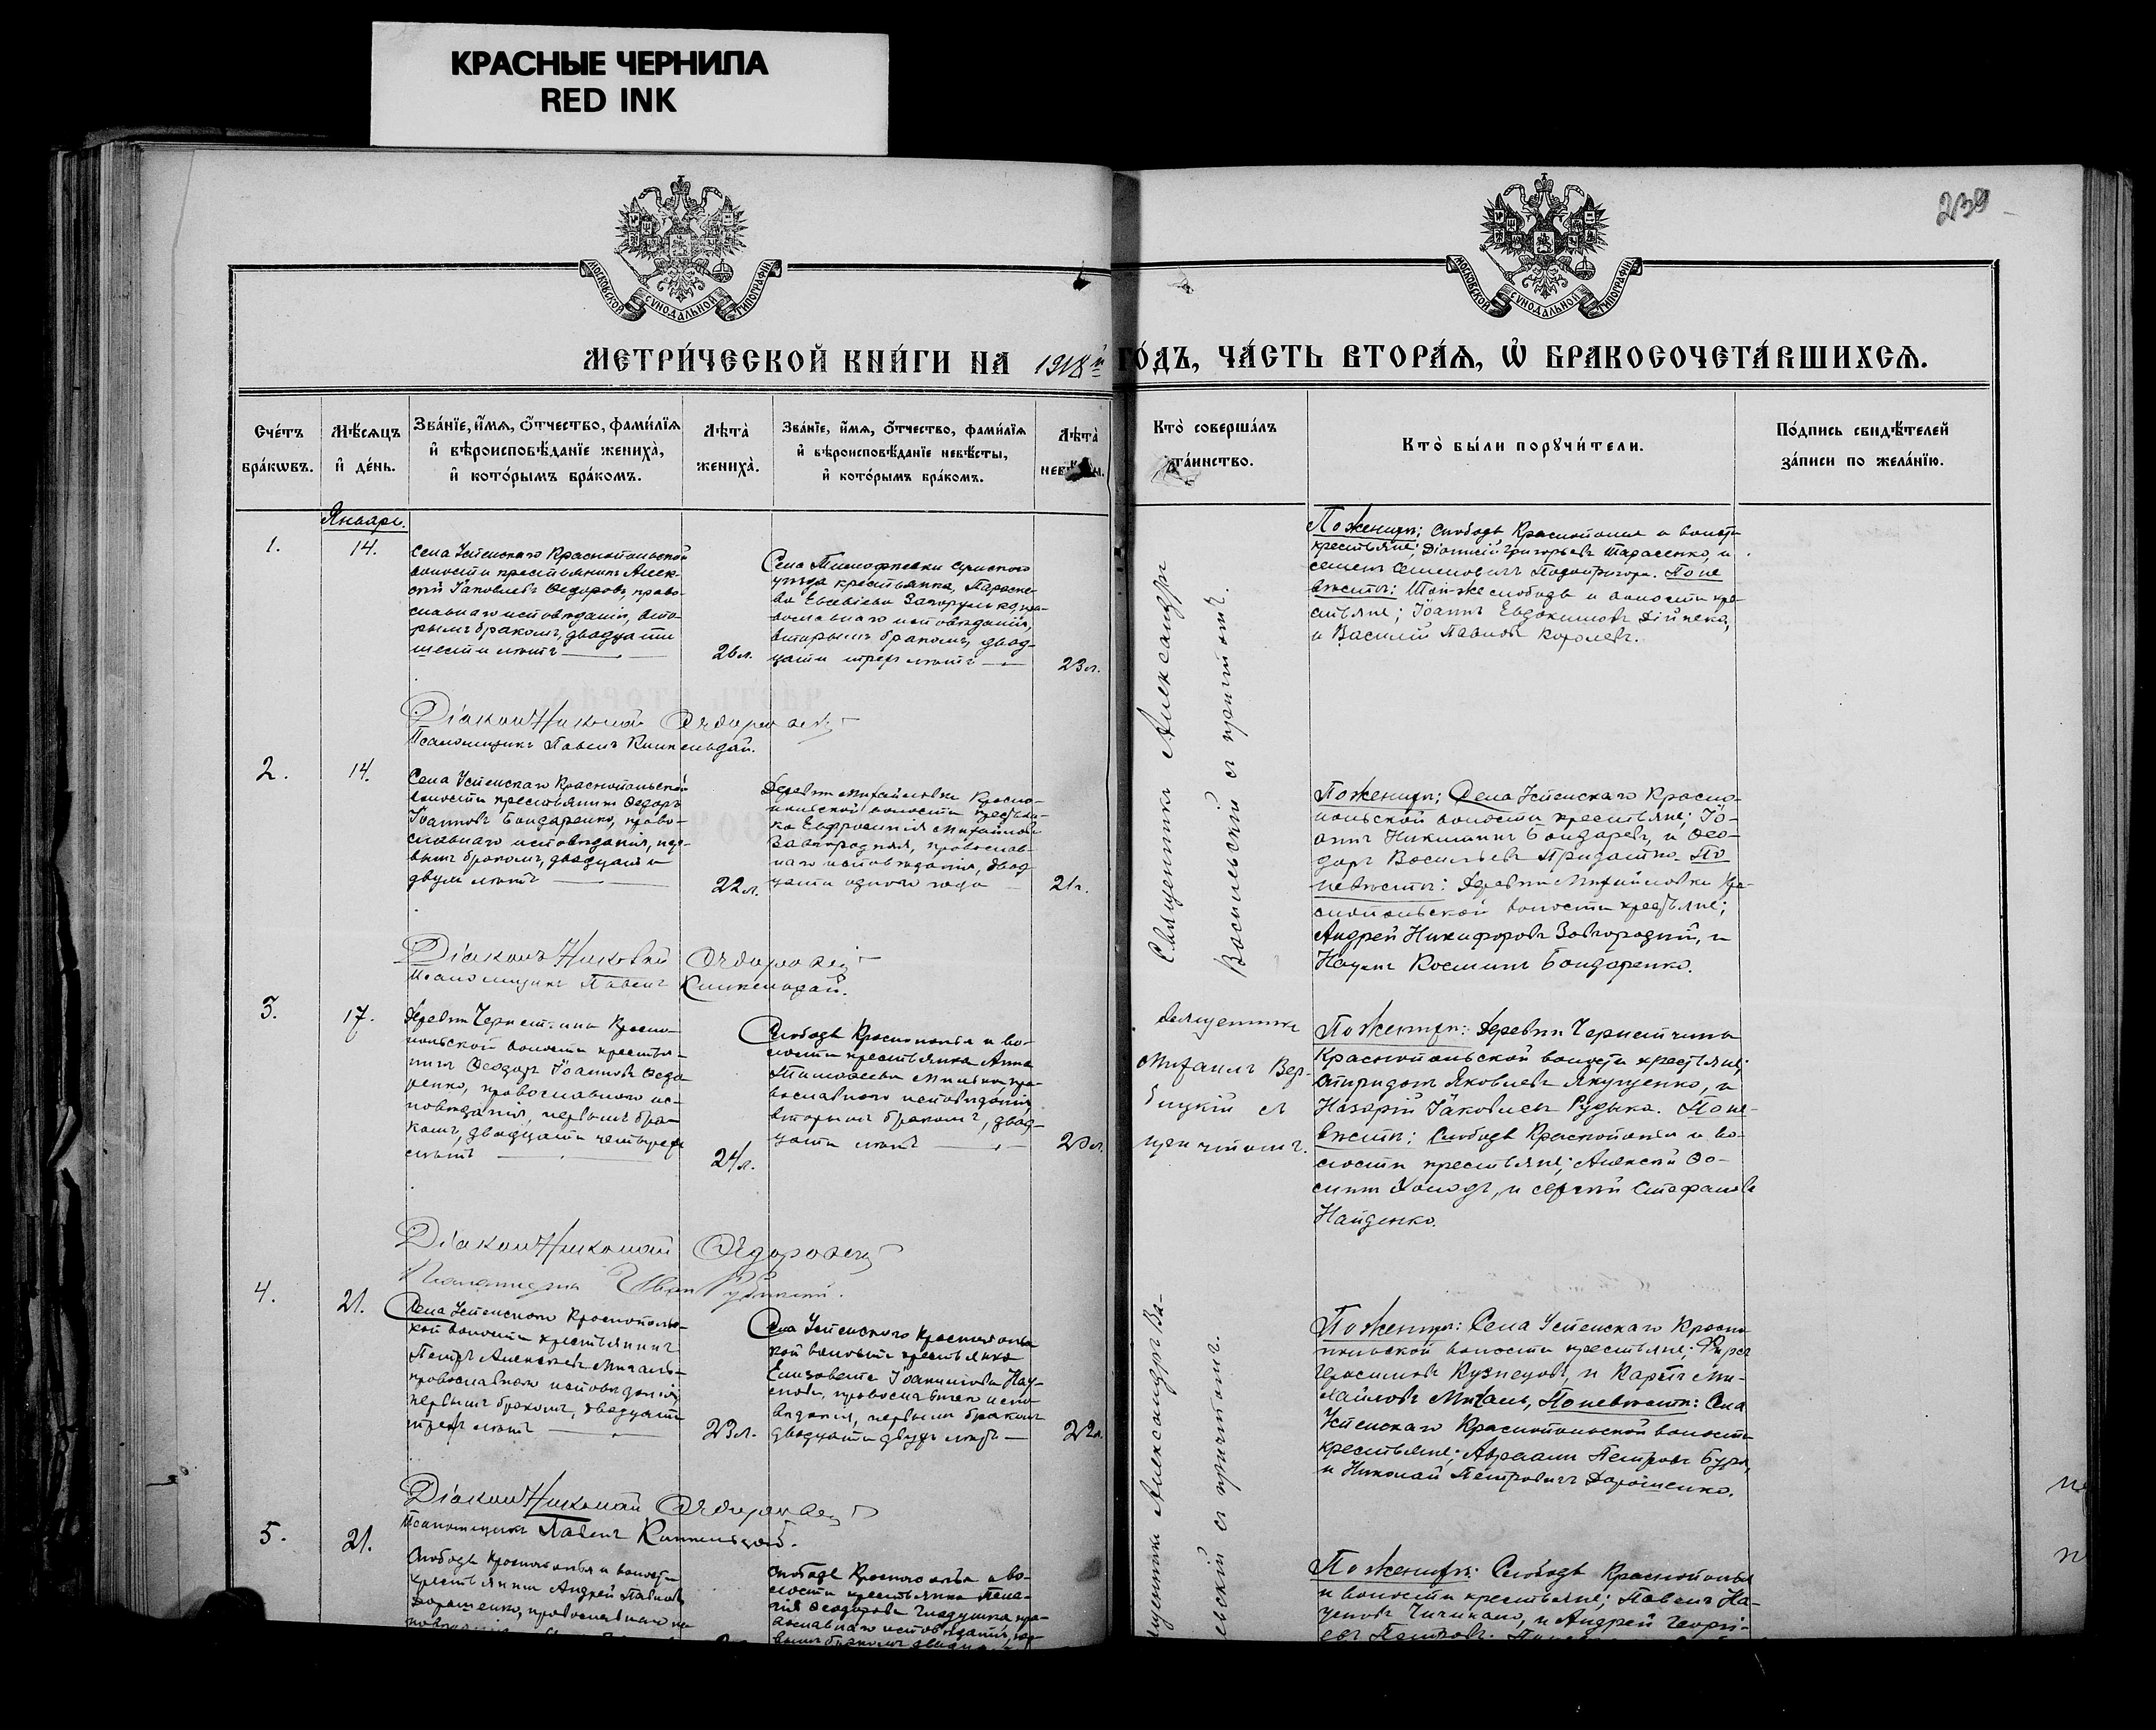 КРАСНЫЕ ЧЕРНИЛА
RED INK
239
МОСКОВСКОЙ СѴНОДАЛЬНОЙ ТИПОГРАФІИ
МОСКОВСКОЙ СѴНОДАЛЬНОЙ ТИПОГРАФІИ
МЕТРИ́ЧЕСКОЙ КНИ́ГИ НА 1918й ГО́ДЪ, ЧА́СТЬ ВТОРА́Я, Ѡ҆ БРАКОСОЧЕТА́ВШИХСЯ.
Сче́тъ
бра́кѡвъ.
Мѣ́сяцъ
и҆ де́нь.
Зва́нїе, и҆́мя, ѻ҆́тчество, фами́лїя
и҆ вѣроисповѣ́данїе жениха̀,
и҆ кото́рымъ бра́комъ.
Лѣта̀
жениха̀.
Зва́нїе, и҆́мя, ѻ҆́тчество, фами́лїя
и҆ вѣроисповѣ́данїе невѣ́сты,
и҆ кото́рымъ бра́комъ.
Лѣта̀
Кто̀ соверша́лъ
та́инство.
Кто̀ бы́ли порꙋчи́тели.
По́дпись свидѣ́телей
за́писи по жела́нїю.
Январь.
1.
14.
Села Успенскаго Краснопольской
волости крестьянинъ Алек-
сѣй Іаковлевъ Федоровъ, право-
славнаго исповѣданія, вто-
рымъ бракомъ, двадцати
шести лѣтъ
26 л.
Села Тимофѣевки Сумского
уѣзда крестьянка, Параске-
ва Евсевіева пра-
вославнаго исповѣданія,
вторымъ бракомъ, двад-
цати трех лѣтъ
23 л.
Священникъ Александръ
Васильевскій съ причтомъ.
По женихѣ: Слободы Краснополья и волости
крестьяне; Діонисій Григорьевъ Тарасенко, и
Семенъ Семеновичъ Подопригора. По не
вѣстѣ: Той-же слободы и волости кре-
стьяне; Іоаннъ Евдокимовъ Дійнека,
и Василій Павловъ Королевъ.
Діаконъ Николай Ѳедоровскій
Псаломщикъ Павелъ
2.
14.
Села Успенскаго Краснопольской
волости крестьянинъ Ѳедоръ
Іоанновъ Бондаренко, право-
славнаго исповѣданія, пер-
вымъ бракомъ, двадцати
двухъ лѣтъ
22 л.
Деревни Михайловки Красно-
польской волости крестьян-
ка Евфросинія Михайлова
Завгородняя, православ-
наго исповѣданія, двад-
цати одного года
21 г.
По женихѣ: Села Успенскаго Красно-
польской волости крестьяне; Іо-
аннъ Никитинъ Бондаревъ, и Ѳео-
доръ Васильевъ Придатко. По
невѣстѣ: Деревни Михайловки Кра-
снопольской волости крестьяне;
Андрей Никифоровъ Завгородній, и
Наумъ Косминъ Бондаренко.
Діаконъ Николай Ѳедоровскій
Псаломщикъ Павелъ
3.
17.
Деревни Чернетчины Красно-
польской волости крестья-
нинъ Ѳеодоръ Іоанновъ Ѳедо
ренко, православнаго ис-
повѣданія, первымъ бра-
комъ, двадцати четырех
лѣтъ
24 л.
Слободы Краснополья и во-
лости крестьянка Анна
Тимоѳеева пра-
вославнаго исповѣданія,
вторымъ бракомъ, двад-
цати лѣтъ
20 л.
Священникъ
Михаилъ Вер-
бицкій съ
причтомъ.
По женихѣ: Деревни Чернетчины
Краснопольской волости крестьяне;
Спиридонъ Яковлевъ Якущенко, и
Назарій Іаковлевъ Рудыка. По не-
вѣстѣ: Слободы Краснополья и во-
лости крестьяне; Алексѣй Ѳо-
минъ Холодъ, и Сергѣй Стефановъ
Найденко.
Діаконъ Николай Ѳедоровскій
Псаломщикъ Иванъ
4.
21.
Села Успенскаго Краснополь-
кой волости крестьянинъ
Петръ Алексѣевъ Михаль-
православнаго исповѣданія,
первымъ бракомъ, двадцати
трехъ лѣтъ
23 л.
Села Успенскаго Краснополь
кой волости крестьянка
Елизавета Іоакимова Нау-
мова, православнаго испо-
вѣданія, первымъ бракомъ
двадцати двухъ лѣтъ
22 л.
Священникъ Александръ Ва-
сильевскій съ причтомъ.
По женихѣ: Села Успенскаго Красно-
польской волости крестьяне; Фирсъ
Герасимовъ Кузнецовъ, и Карпъ Ми-
хайловъ Михаль, По невѣстѣ: Села
Успенскаго Краснопольской волости
крестьяне; Авраамъ Петровъ
и Николай Петровичъ Дорошенко.
Діаконъ Николай Ѳедоровскій
Псаломщикъ Павелъ
5.
21.
Слободы Краснополья и волости
крестьянинъ Андрей Павловъ
Дорошенко, православнаго ис
Слободы Краснополья и во-
лости крестьянка Пела-
гія Ѳеодорова Гладушка, пра-
вославнаго исповѣданія, пер-
вымъ бракомъ
По женихѣ: Слободы Краснополья
и волости крестьяне; Павелъ На-
умовъ Чичикало, и Андрей Георгі-
евъ Петровъ.